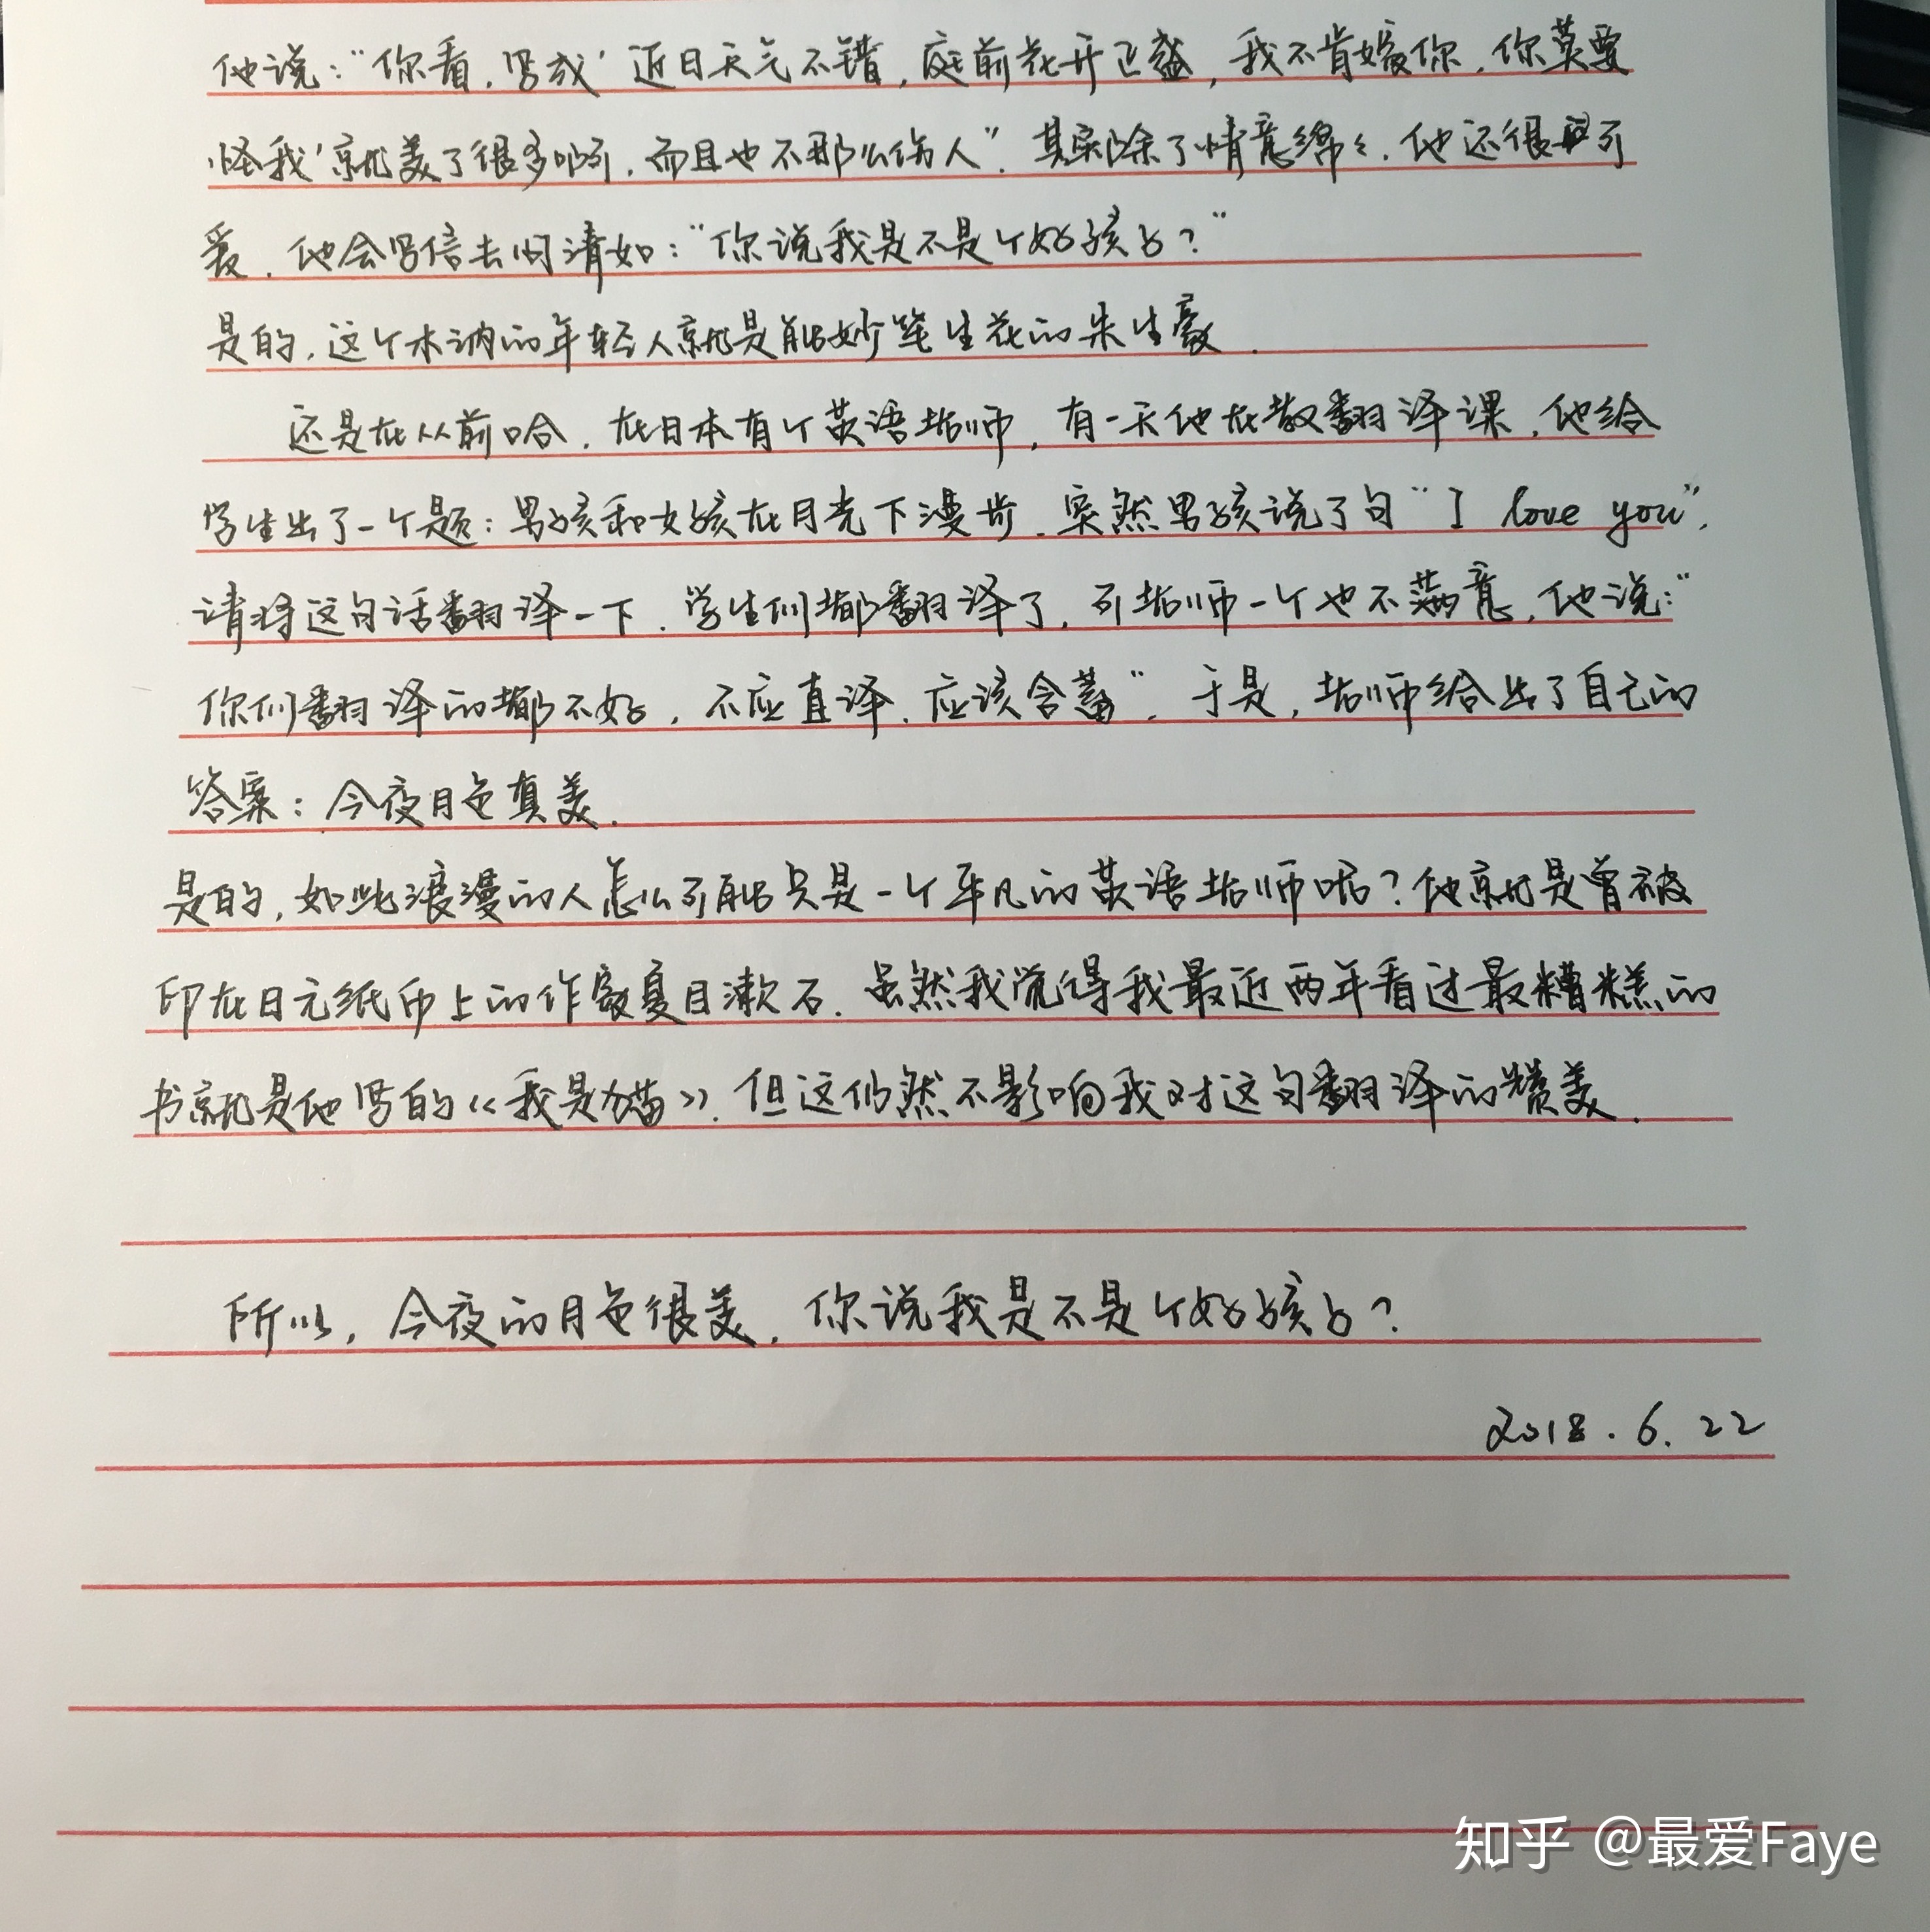 他说：“你看，写成‘近日天气不错，庭前花开正盛，我不肯嫁你，你莫要
怪我’就美了很多啊，而且也不那么伤人”。其实除了情意绵々，他还很可
爱，他会写信去问清如：“你说我是不是个好孩子？”
是的，这个木讷的年轻人就是能妙笔生花的朱生豪．
还是在从前哈，在日本有个英语老师，有一天他在教翻译课，他给
学生出了一个题：男孩和女孩在月光下漫步，突然男孩说了句“I love you”，
请将这句话翻译一下．学生们都翻译了，可老师一个也不满意，他说：“
你们翻译的都不好，不应直译，应该含蓄”，于是，老师给出了自己的
答案：今夜月色真美．
是的，如此浪漫的人怎么可能只是一个平凡的英语老师呢？他就是曾被
印在日元纸币上的作家夏目漱石．虽然我觉得我最近两年看过最糟糕的
书就是他写的《我是猫》，但这仍然不影响我对这句翻译的赞美．
所以，今夜的月色很美，你说我是不是个好孩子？
2018.6.22
知乎 @最爱Faye